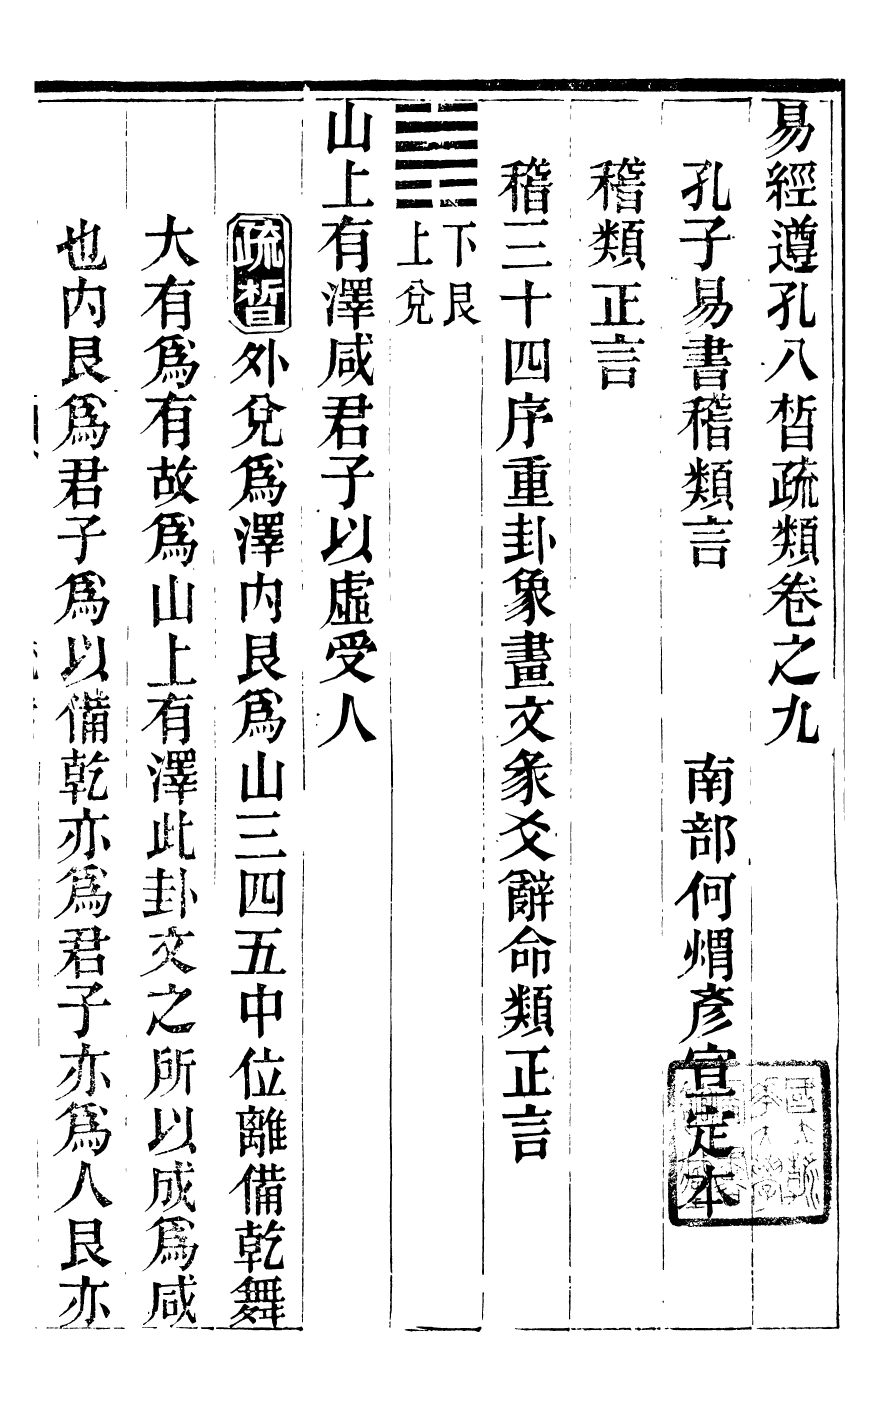 易經遵孔八晳疏類卷之九
孔子易書稽類言　南部何焨彥宣定本
稽類正言
稽三十四序重卦象畫文彖爻辭命類正言
䷞下艮
上兌
山上有澤咸君子以虛受人
疏晳外兌爲澤內艮爲山三四五中位離備乾舞
大有爲有故爲山上有澤此卦文之所以成爲咸
也內艮爲君子爲以備乾亦爲君子亦爲人艮亦